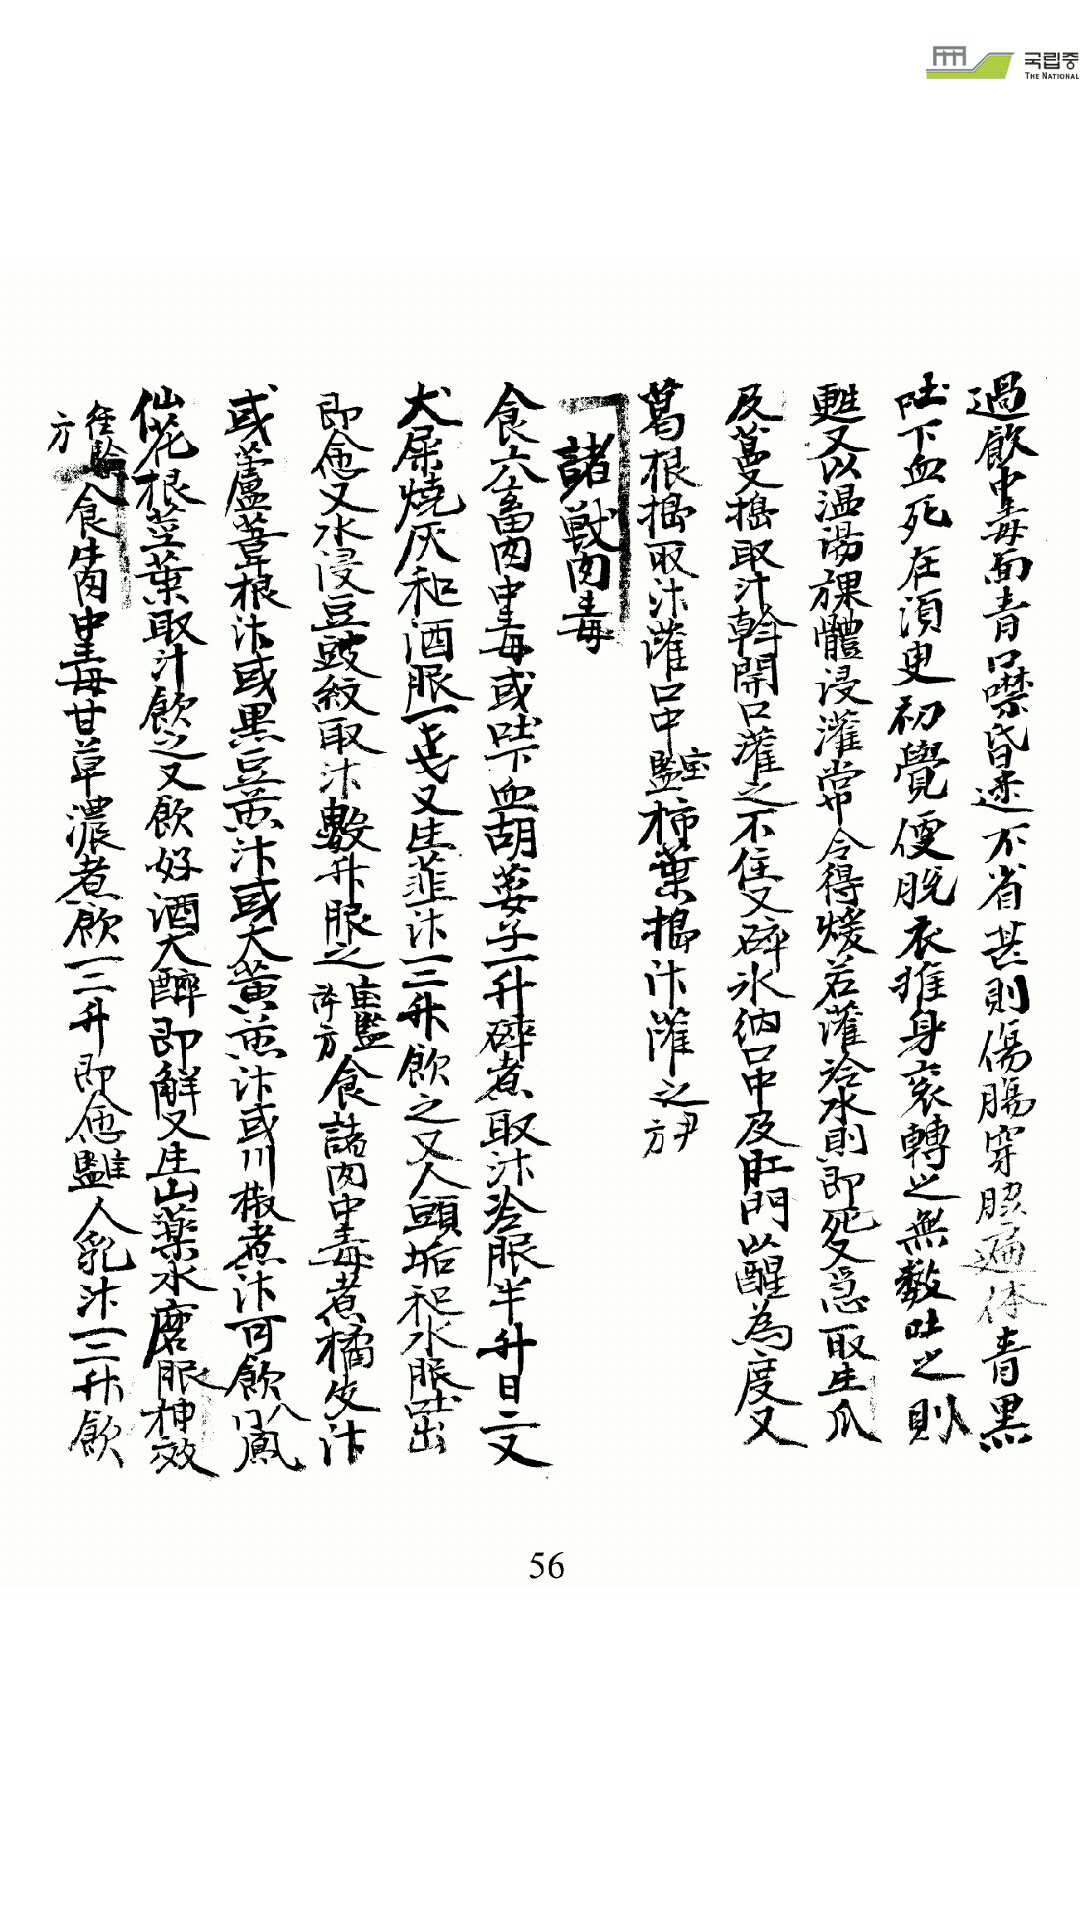 국립중
THE NATIONAL
過飮中毒面青口噤昏迷不省甚則傷腸穿脇遍体青黑
吐下血死在須臾初覺便脫衣推身衮轉之無數吐之則
甦又以温湯裸體浸灌常令得煖若灌冷水則即死又急取生瓜
及蔓搗取汁斡開口灌之不住又碎氷納口中及肛門以醒為度又
葛根搗取汁灌口中宝鑑柿葉搗汁灌之尹方
諸獸肉毒
食六畜肉中毒或吐下血胡荽子一升碎煮取汁冷服半升日二又
犬屎燒灰和酒服一戔又生韮汁一二升飮之又人頭垢和水服吐出
即愈又水浸豆豉絞取汁數升服之宝鑑諸方食諸肉中毒煮橘皮汁
或蘆葦根汁或黑豆煎汁或大黃煎汁或川椒煮汁可飮入門鳳
仙花根莖葉取汁飮之又飮好酒大醉即解又生山藥水磨服神效
經驗方食牛肉中毒甘草濃煮飮一二升即愈雖鑑人乳汁一二升飮
56